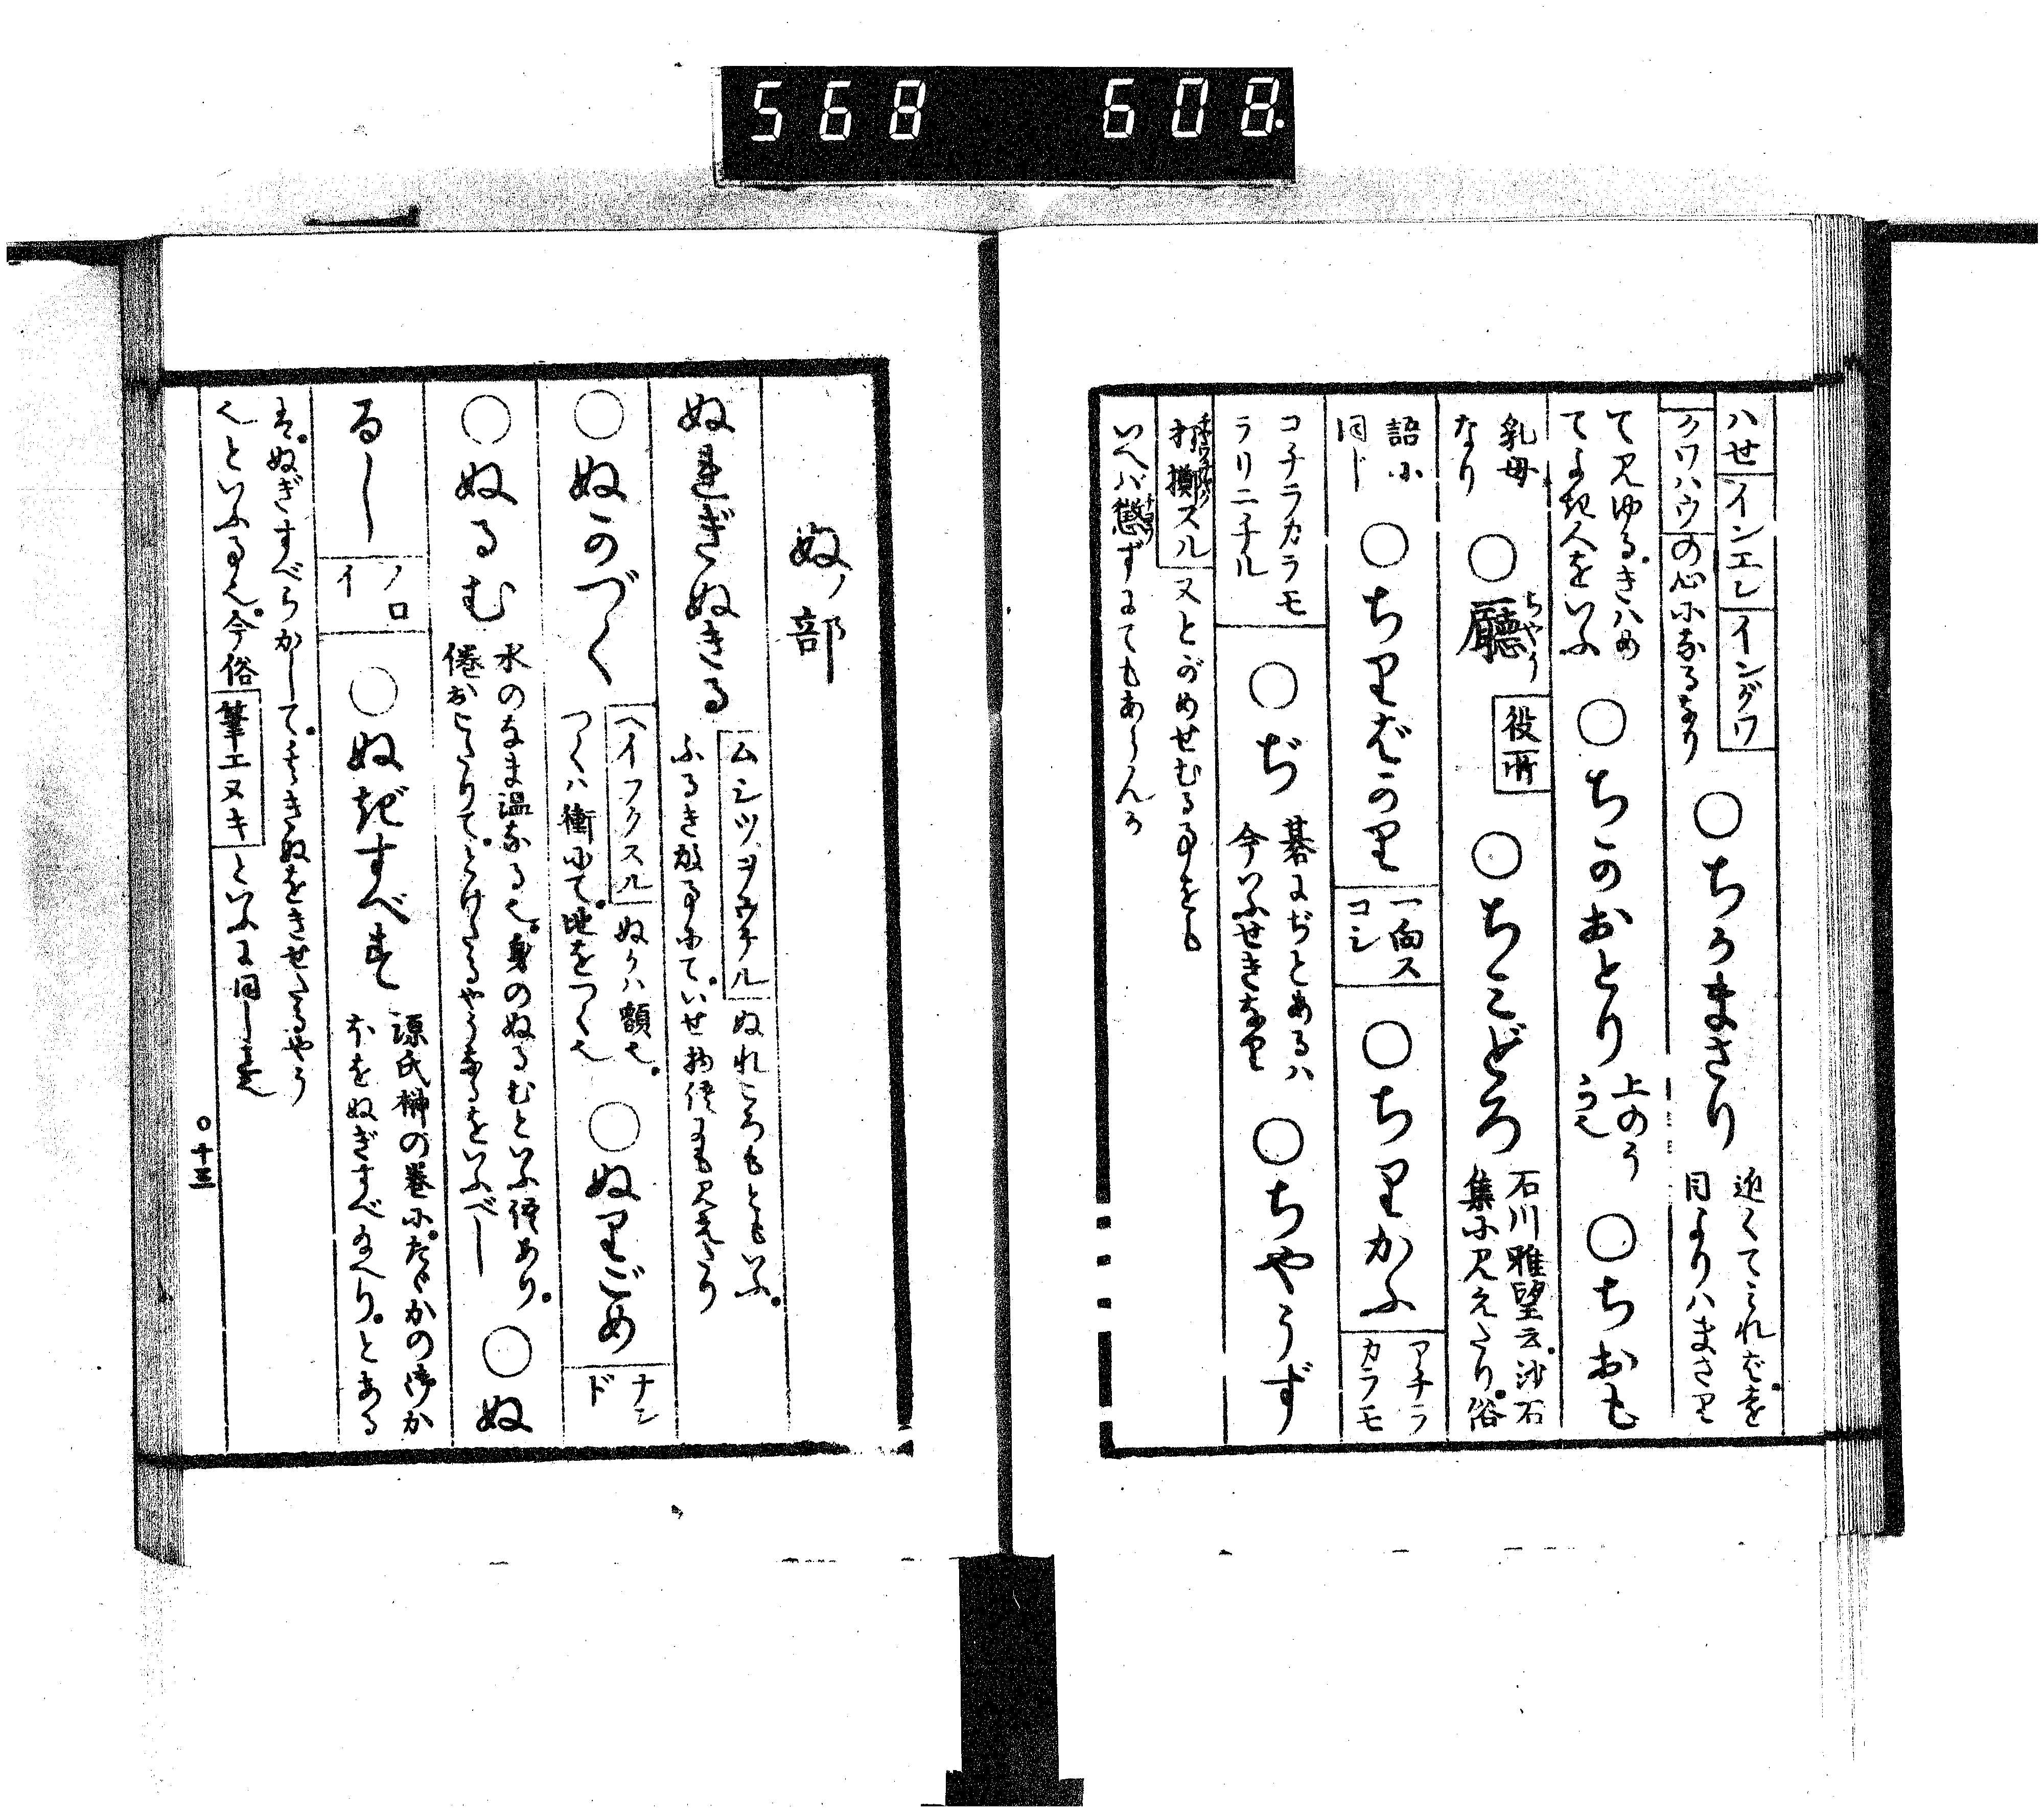 568 608.
ハせ インエン インガワ
クワハウ の心に なるなり
○ちかまさり
近くてみれば遠
目よりハまさり
て見ゆる。きハめ
てよき人をいふ
○ちのおとり
上のう
うへ
○ちおも
乳母
なり
○廳 ちやう
役所
○ちみどろ
石川雅望云。沙石
集に見えたり。俗
語に
同じ
○ちりばかり
一向ス
コシ
○ちりかふ
アチラ
カラモ
コチラカラモ
ラリニチル
○ぢ
碁にぢとあるハ
今いふせきなり
○ちやうず
打擲スル
又とがめせむる事をも
いへバ懲ずにてもあらんか
ぬノ部
ぬれぎぬきる
ムシツヲウケル
ぬれころもともいふ。
ふるき故事にて。いせ物語にも見えたり
○ぬかづく
ヘイフクスル
ぬかハ額也。
つくハ衝にて。地をつく也
○ぬりごめ
ナン
ド
○ぬるむ
水のなま温なる也。身のぬるむといふ語あり。
倦おこたりて。とけたるやうなるをいふべし
○ぬ
るし
ノロ
イ
○ぬぎすべす
源氏榊の巻に。たゞかの御か
ほをぬぎすべし給へり。とある
は。ぬぎすべらかして。うすきぬをきせたるやう
也といふ事也。今俗
筆エヌキ
といふに同じき也
○十三